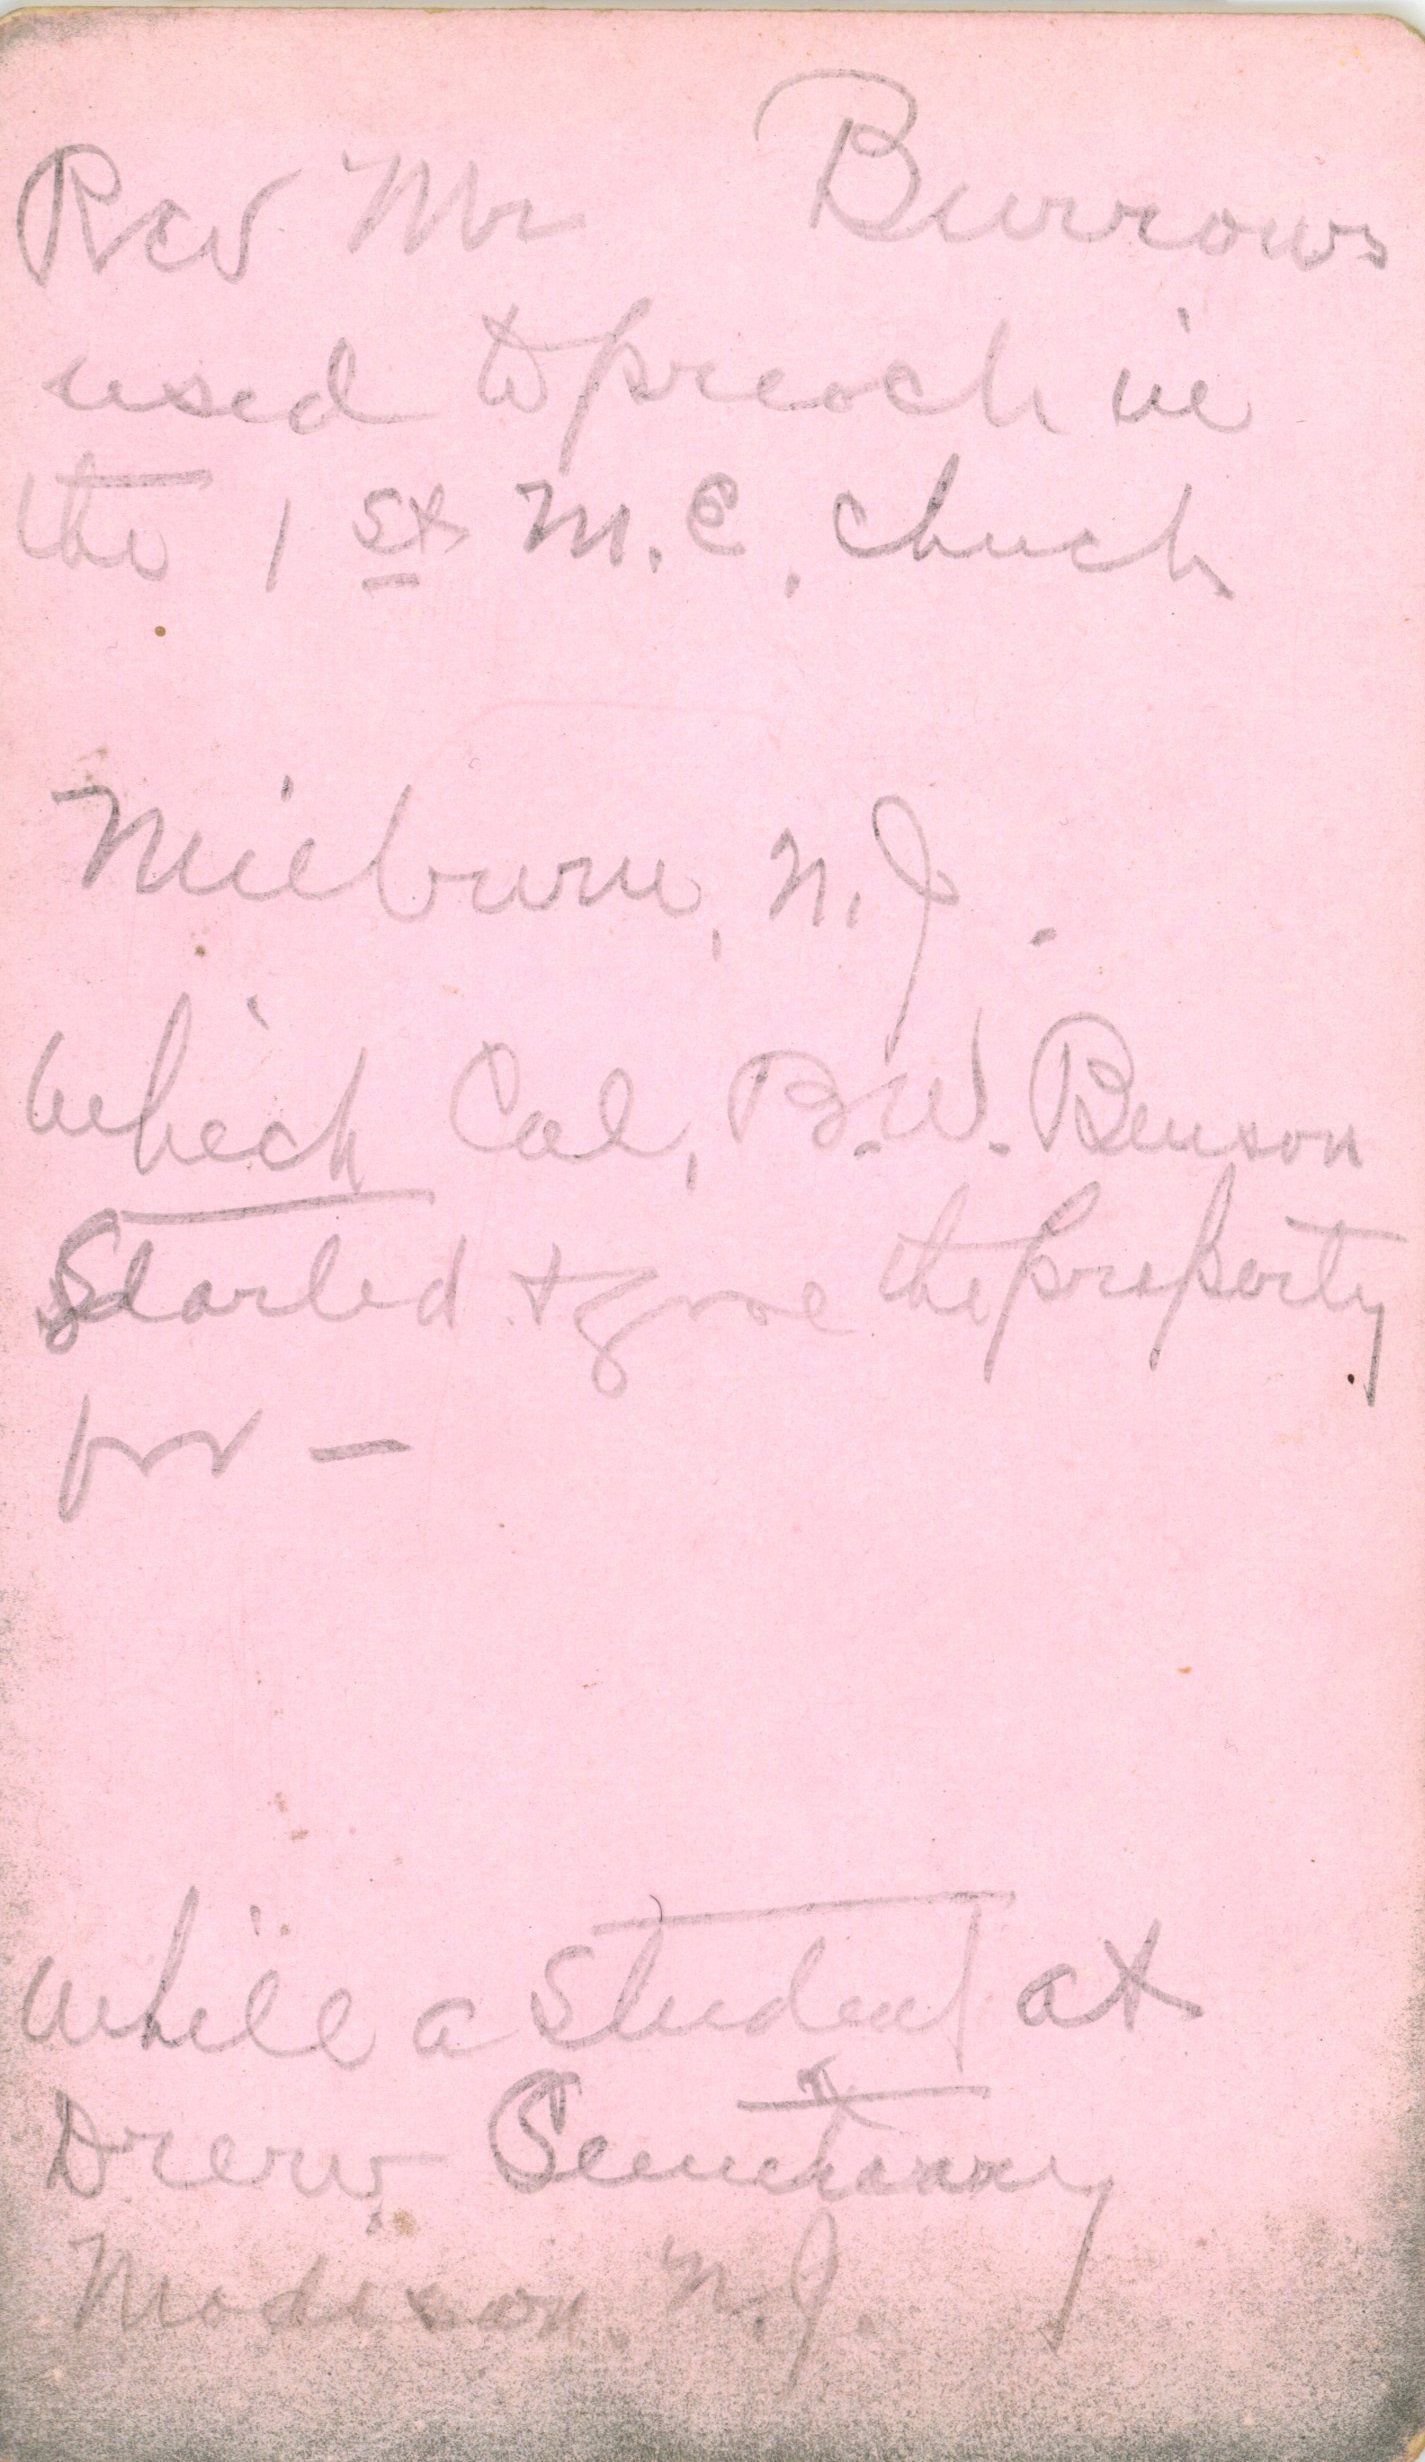 Rev Mr Burrows
used to preach in
the 1st M.E. chuch
Milburn, N.J.
which Col, B.W. Benson
Started + gave the property
for —
while a student at
Drew Seminary
Madison. N.J.